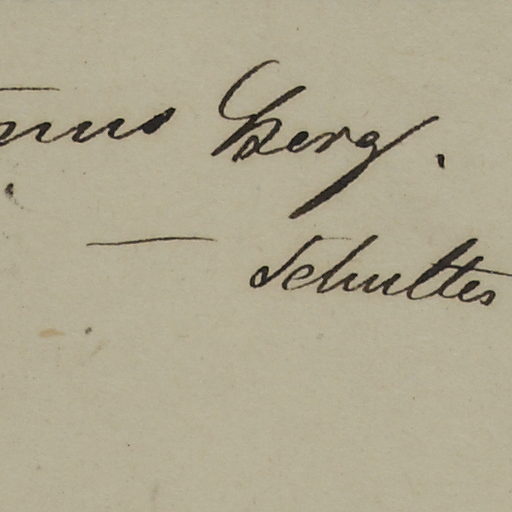 Berg.
— Schultes